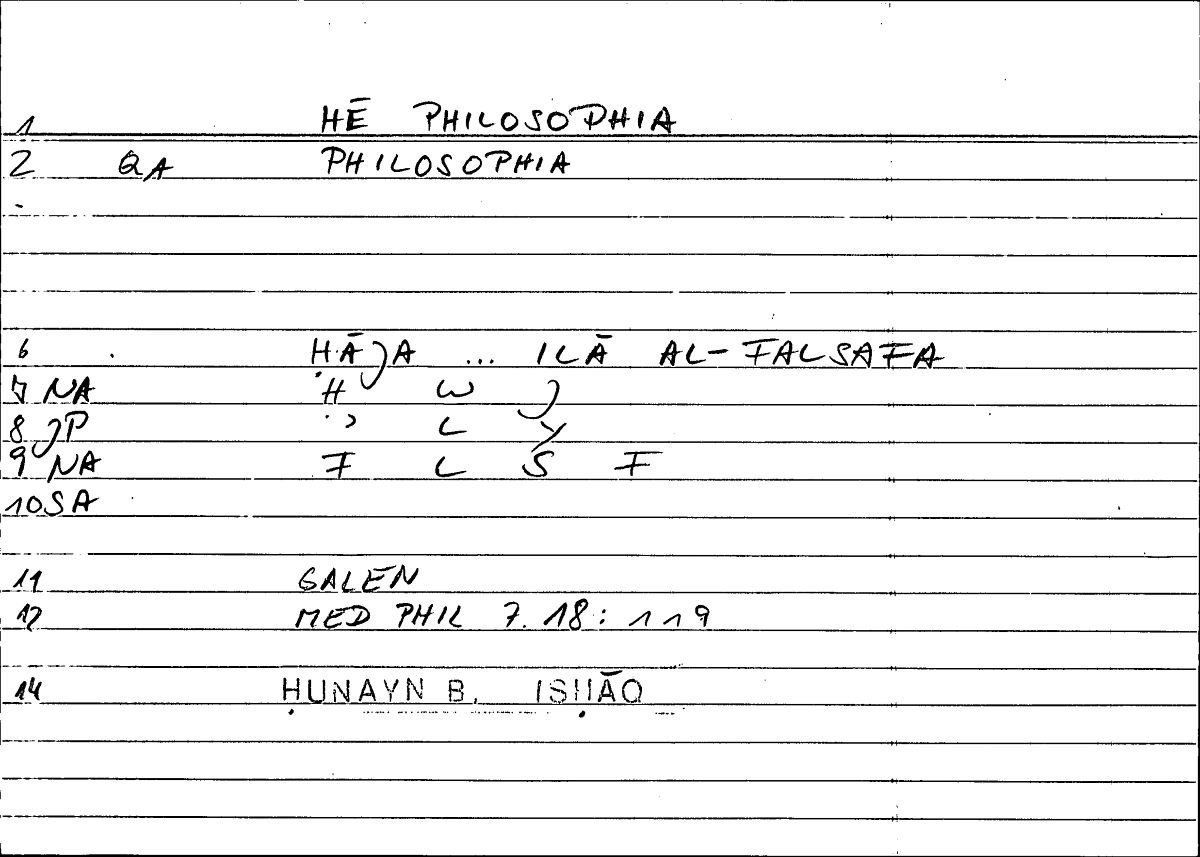 1 HĒ PHILOSOPHIA
2 QA PHILOSOPHIA
6 ḤĀJA ... ILĀ AL-FALSAFA
7 NA Ḥ W J
8 JP ʾ L Y
9 NA F L S F
10 SA
11 GALEN
12 MED PHIL 7.18: 119
14 ḤUNAYN B. ISḤĀQ